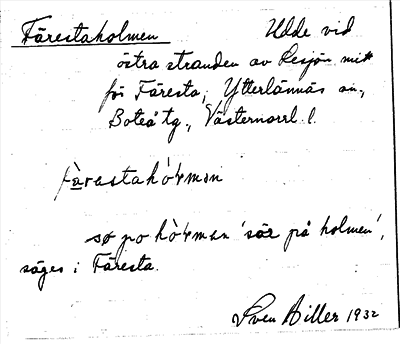 Färestaholmen Udde vid
östra stranden av Lesjön mitt
för Färesta, Ytterlännäs sn,
Boteå tg., Västernorrl. l.
fàrastahó̀ɫmən
sø̄ po hò̀ɫmən 'sär på holmen',
säges i Färesta.
Sven Hiller 1932